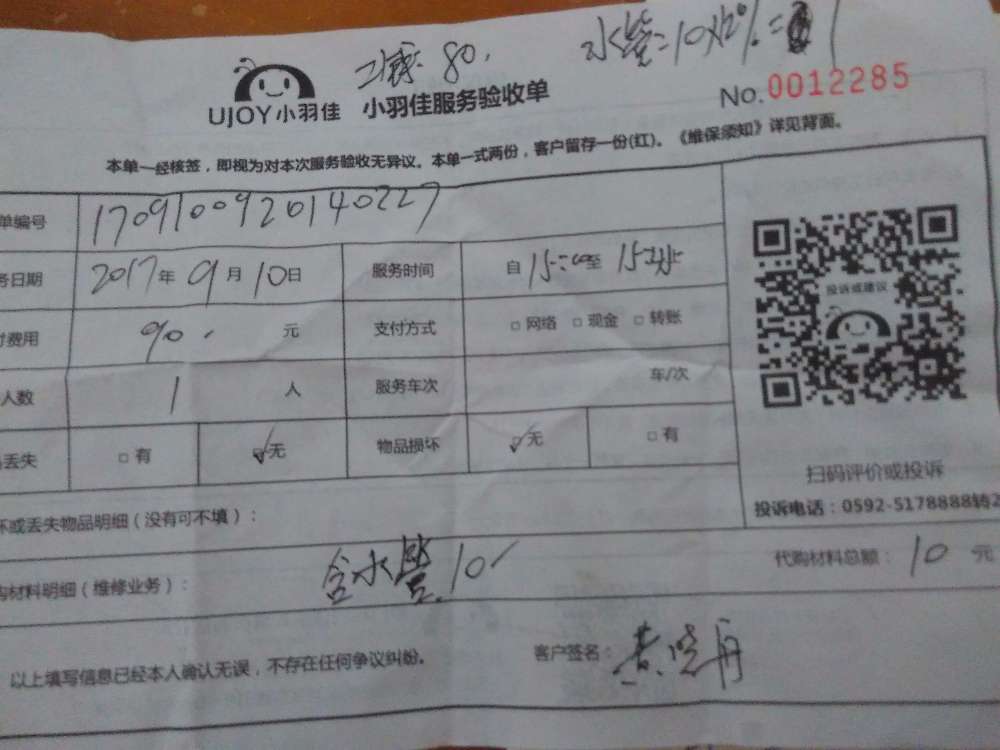 80. 水管=10×12%=
UJOY小羽佳 小羽佳服务验收单 No.0012285
本单一经核签，即视为对本次服务验收无异议。本单一式两份，客户留存一份(红)。《维保须知》详见背面。
单编号 1709100920140227
务日期 2017年9月10日 服务时间 自15:00至15:45
付费用 90. 元 支付方式 □网络 □现金 □转账
人数 1 人 服务车次 车/次
丢失 □有 ☑无 物品损坏 ☑无 □有
投诉或建议
扫码评价或投诉
投诉电话：0592-5178888转2
坏或丢失物品明细（没有可不填）：
购材料明细（维修业务）： 含水管10 代购材料总额：10元
以上填写信息已经本人确认无误，不存在任何争议纠纷。 客户签名：黄晓丹